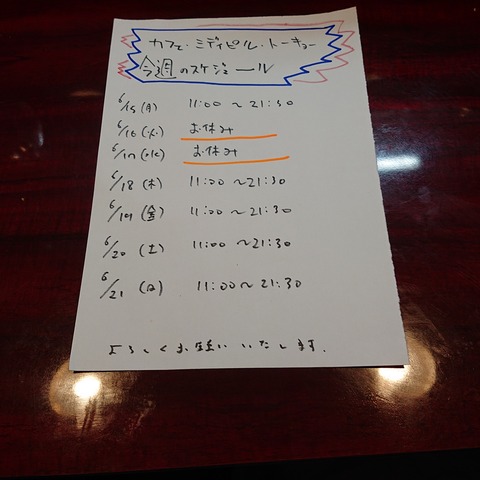 カフェ・ミディピル・トーキョー
今週のスケジュール
6/15(月) 11:00~21:30
6/16(火) お休み
6/17(水) お休み
6/18(木) 11:00~21:30
6/19(金) 11:00~21:30
6/20(土) 11:00~21:30
6/21(日) 11:00~21:30
よろしくお願いいたします.